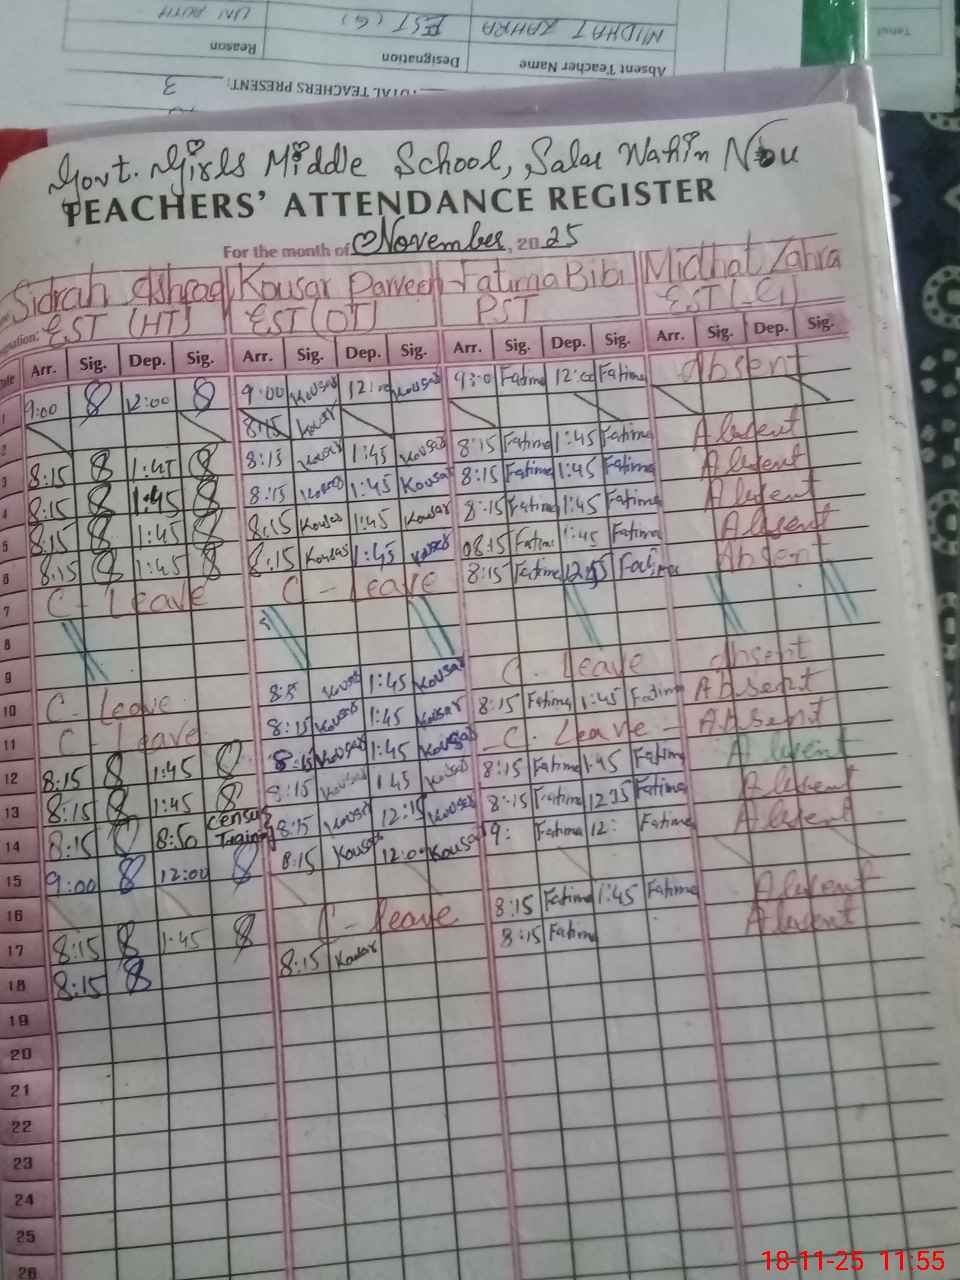 MIDHAT ZAHRA EST (G) UN AUTH
Absent Teacher Name Designation Reason
TOTAL TEACHERS PRESENT: 3
Govt. Girls Middle School, Salar Wahin Nou
TEACHERS' ATTENDANCE REGISTER
For the month of November, 2025
Sidrah Ashraf Kousar Parveen Fatima Bibi Midhat Zahra
EST (HT) EST (DT) PST EST (G)
Arr. Sig. Dep. Sig. Arr. Sig. Dep. Sig. Arr. Sig. Dep. Sig. Arr. Sig. Dep. Sig.
1 9:00 12:00 9:00 Kousar 12:00 Kousar 9:0 Fatima 12:00 Fatima Absent
2 8:15 Kousar
3 8:15 1:45 8:15 Kousar 1:45 Kousar 8:15 Fatima 1:45 Fatima Absent
4 8:15 1:45 8:15 Kousar 1:45 Kousar 8:15 Fatima 1:45 Fatima Absent
5 8:15 1:45 8:15 Kousar 1:45 Kousar 8:15 Fatima 1:45 Fatima Absent
6 8:15 1:45 8:15 Kousar 1:45 Kousar 08:15 Fatima 1:45 Fatima Absent
7 C-Leave C-Leave 8:15 Fatima Fatima Absent
8
9
10 C-Leave Kousar 1:45 Kousar C-Leave Absent
11 C-Leave 8:15 Kousar 1:45 Kousar 8:15 Fatima 1:45 Fatima Absent
12 8:15 1:45 8:15 Kousar 1:45 Kousar -C-Leave- Absent
13 8:15 1:45 8:15 Kousar 1:45 Kousar 8:15 Fatima 1:45 Fatima Absent
14 8:15 8:50 Census Traing 8:15 Kousar 12:15 Kousar 8:15 Fatima Fatima Absent
15 9:00 12:00 8:15 Kousar 12:00 Kousar 9: Fatima 12: Fatima Absent
16
17 8:15 1:45 C-leave 8:15 Fatima 1:45 Fatima Absent
18 8:15 8:15 Kousar 8:15 Fatima Absent
19
20
21
22
23
24
25
26
18-11-25 11:55